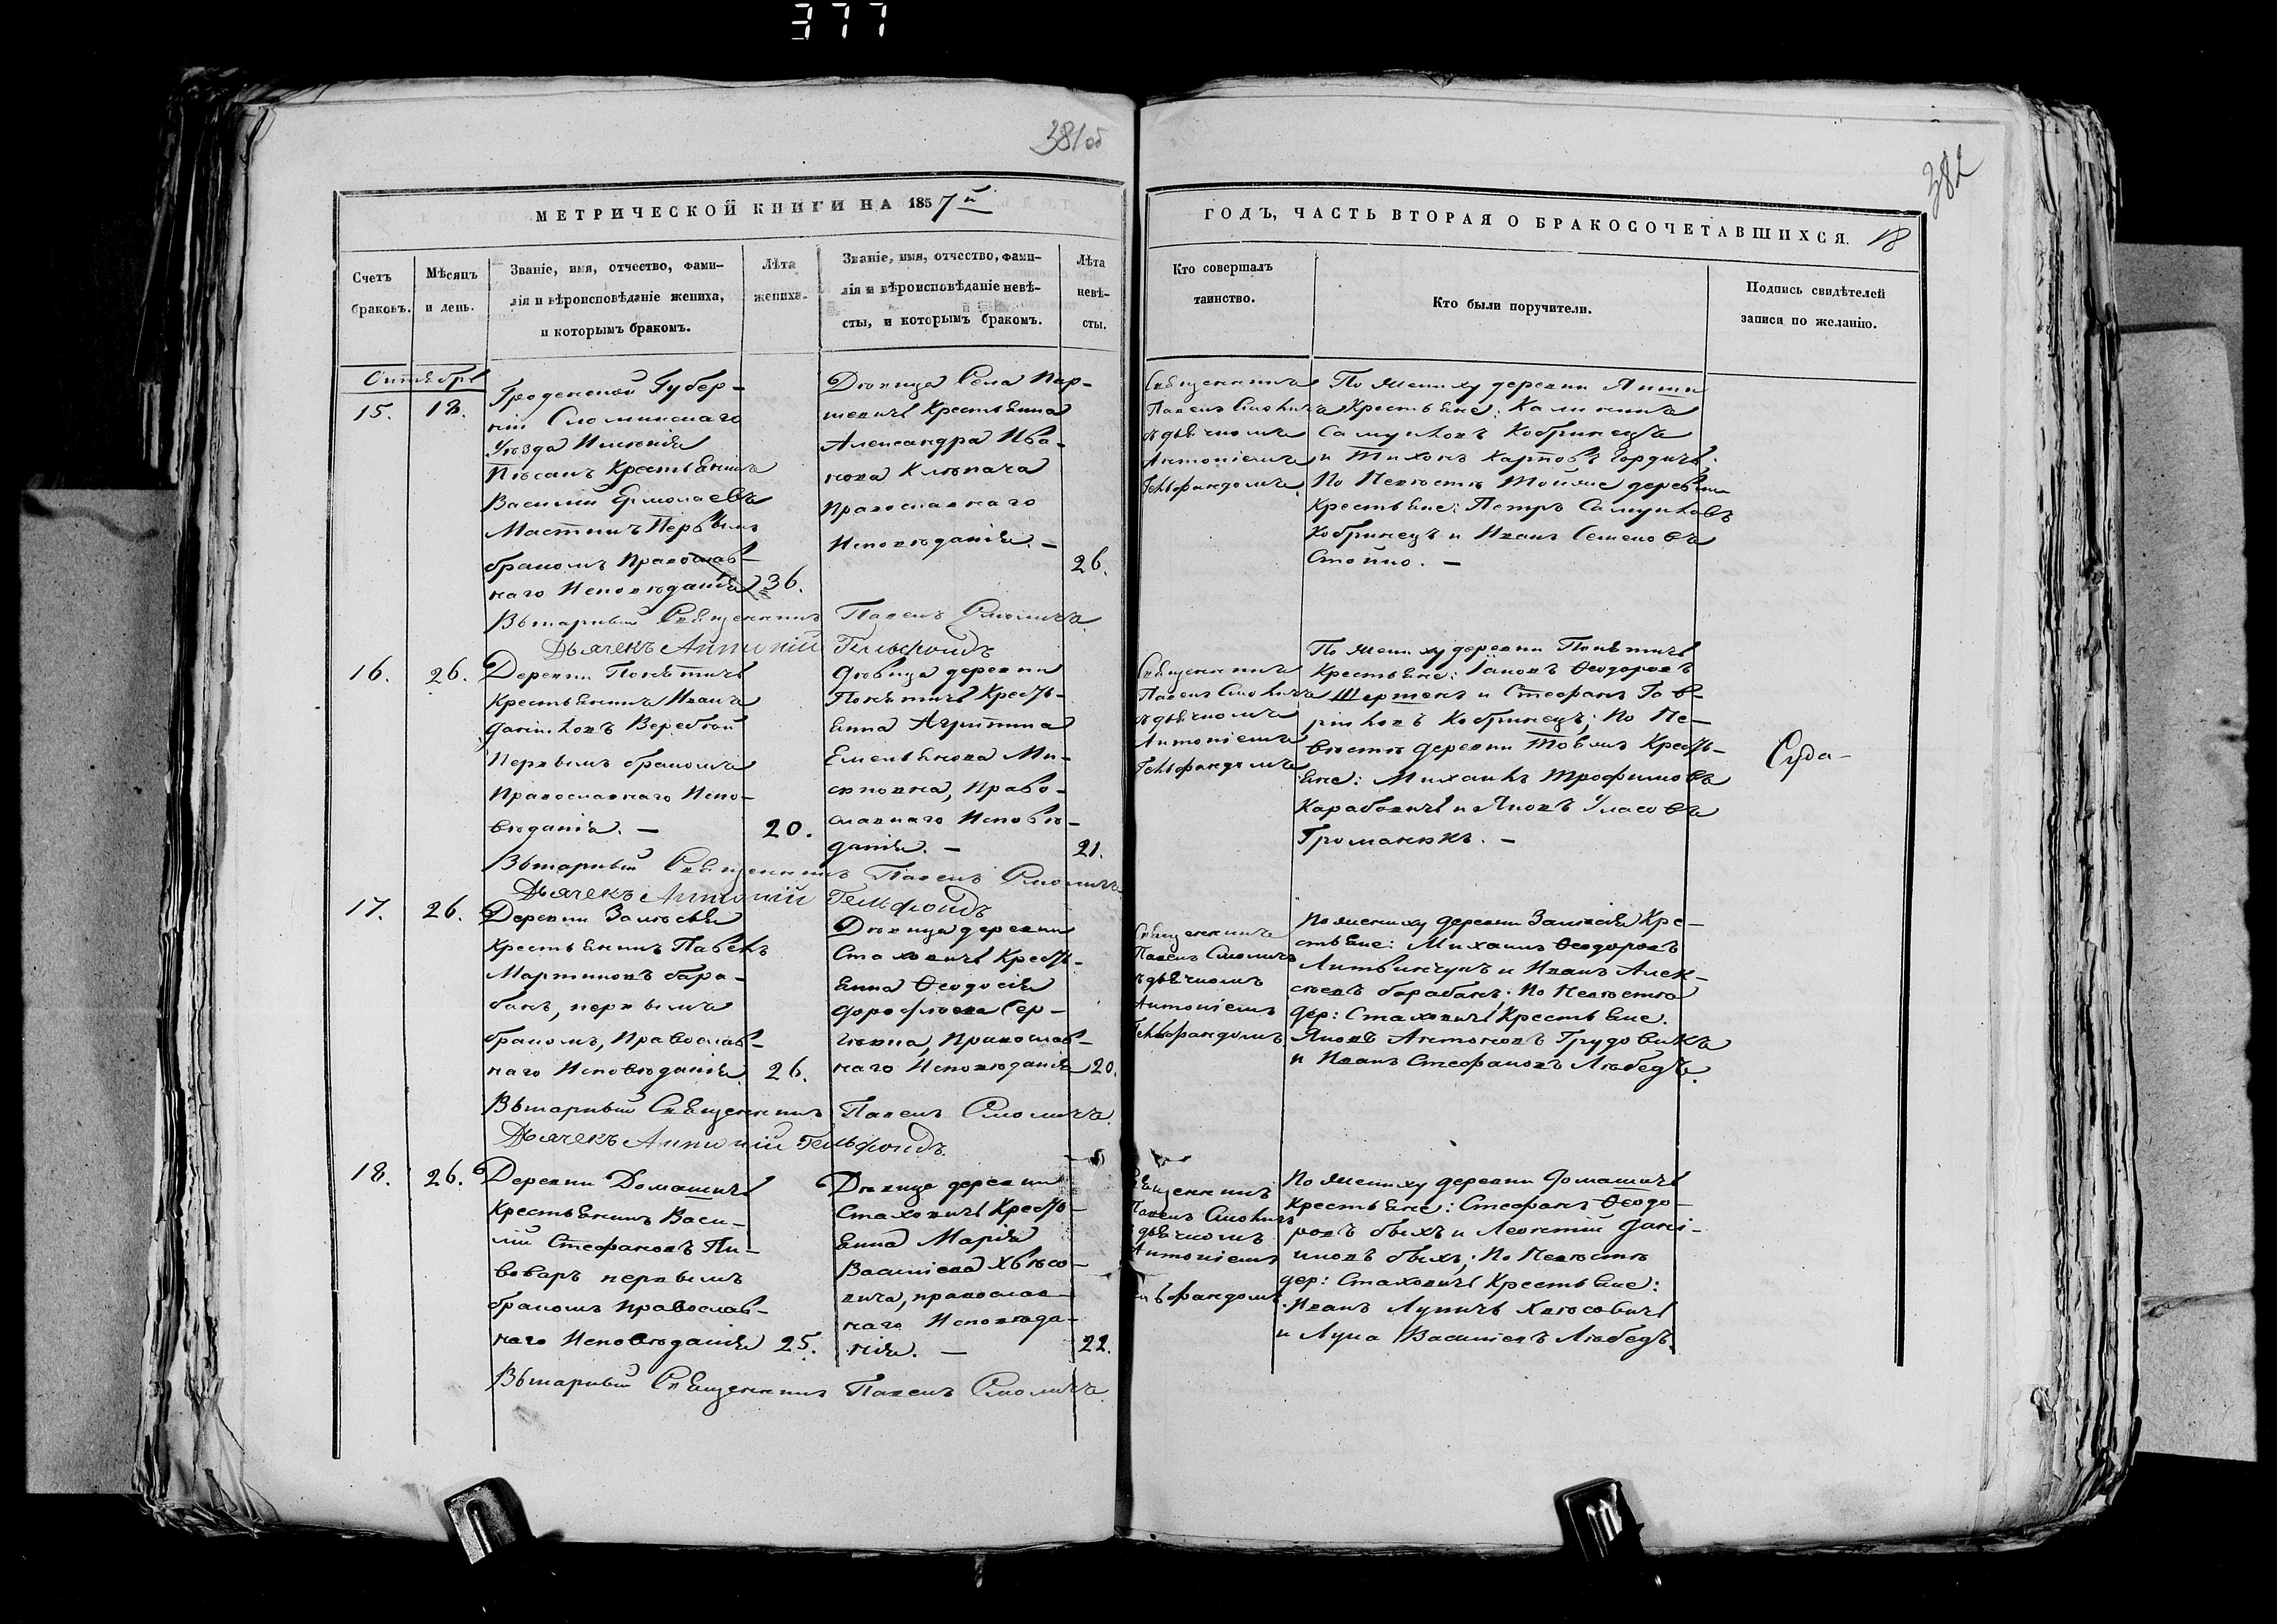 377
381 об
382
МЕТРИЧЕСКОЙ КНИГИ НА 1857й
ГОДЪ, ЧАСТЬ ВТОРАЯ О БРАКОСОЧЕТАВШИХСЯ. 18
Счетъ браковъ.
Мѣсяцъ и день.
Званіе, имя, отчество, фами-
лія и вѣроисповѣданіе жениха,
и которымъ бракомъ.
Лѣта жениха.
Званіе, имя, отчество, фами-
лія и вѣроисповѣданіе невѣ-
сты, и которымъ бракомъ.
Лѣта невѣ-
сты.
Кто совершалъ
таинство.
Кто были поручители.
Подпись свидѣтелей
записи по желанію.
Октябрь
15. 18.
Гроденской Губер-
ніи Слонимскаго
Уѣзда Имѣнія
Пѣсакъ Крестьянинъ
Василій Ермолаевъ
Первымъ
бракомъ Православ-
наго Исповѣданія 36.
Дѣвица Села Пар-
шевичь Крестьянка
Александра Ива-
нова
Православнаго
Исповѣданія. —
26.
Священникъ
Павелъ Смоличъ
съ дьячкомъ
Антоніемъ
Гельфандомъ.
По Жениху деревни
Крестьяне: Калиникъ
Самуиловъ Кобринецъ
и Тихонъ Карповъ Гордичъ.
По Невѣстѣ Тойже деревни
Крестьяне: Петръ Самуиловъ
Кобринецъ и Иванъ Семеновъ
Стойко. —
Вѣтарный Священникъ Павелъ Смоличъ
Дьячекъ Антоній Гельфондъ
16. 26.
Деревни Понѣтичь
Крестьянинъ Иванъ
Даніиловъ Веребей
Первымъ бракомъ
Православнаго Испо-
вѣданія. — 20.
Дѣвица деревни
Понѣтичь Кресть-
янка Агрипина
Емельянова Ми-
Право-
славнаго Исповѣ-
данія. — 21.
Священникъ
Павелъ Смоличъ
съ дьячкомъ
Антоніемъ
Гельфандомъ
По Жениху деревни Понѣтичь
Крестьяне: Іаковъ Ѳеодоровъ
Шертенъ и Стефанъ Гав-
ріиловъ Кобринецъ; По Не-
вѣстѣ деревни Товлъ Кресть-
яне: Михаилъ Трофимовъ
Карабовичь и Яковъ Уласовъ
Громанюкъ. —
Вѣтарный Священникъ Павелъ Смоличъ
Дьячекъ Антоній Гельфондъ
17. 26.
Деревни Залѣсья
Крестьянинъ Павелъ
Мартиновъ бара-
банъ, первымъ
бракомъ, Православ-
наго Исповѣданія. 26.
Дѣвица деревни
Стаховичь Кресть-
янка Ѳеодосія
Дорофѣева Сер-
гѣева, Православ-
наго Исповѣданія 20.
Священникъ
Павелъ Смоличъ
съ дьячкомъ
Антоніемъ
Гельфандомъ.
По жениху деревни Залѣсія Кре-
стьяне: Михаилъ Ѳеодоровъ
Литвинчукъ и Иванъ Алек-
сѣевъ барабанъ; По Невѣстѣ
дер: Стаховичь Крестьяне.
Яковъ Антоновъ Грудовикъ
и Иванъ Стефановъ Любедъ.
Вѣтарный Священникъ Павелъ Смоличъ
Дьячекъ Антоній Гельфондъ.
18. 26.
Деревни Домашичь
Крестьянинъ Васи-
лій Стефановъ Пи-
воваръ первымъ
бракомъ Православ-
наго Исповѣданія 25.
Дѣвица деревни
Стаховичь Кресть-
янка Марія
Василіева Хвѣсо-
вича, православ-
наго Исповѣда-
нія. — 22.
Священникъ
Павелъ Смоличъ
съ дьячкомъ
Антоніемъ
Гельфандомъ.
По Жениху деревни Домашичь
Крестьяне: Стефанъ Ѳеодо-
ровъ быхъ и Леонтій Дані-
иловъ быхъ; По Невѣстѣ
дер: Стаховичь Крестьяне:
Иванъ Лукичъ Хвѣсовичь
и Лука Василіевъ Любедъ.
Вѣтарный Священникъ Павелъ Смоличъ